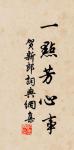 一點芳心事
賀新郎詞與網集